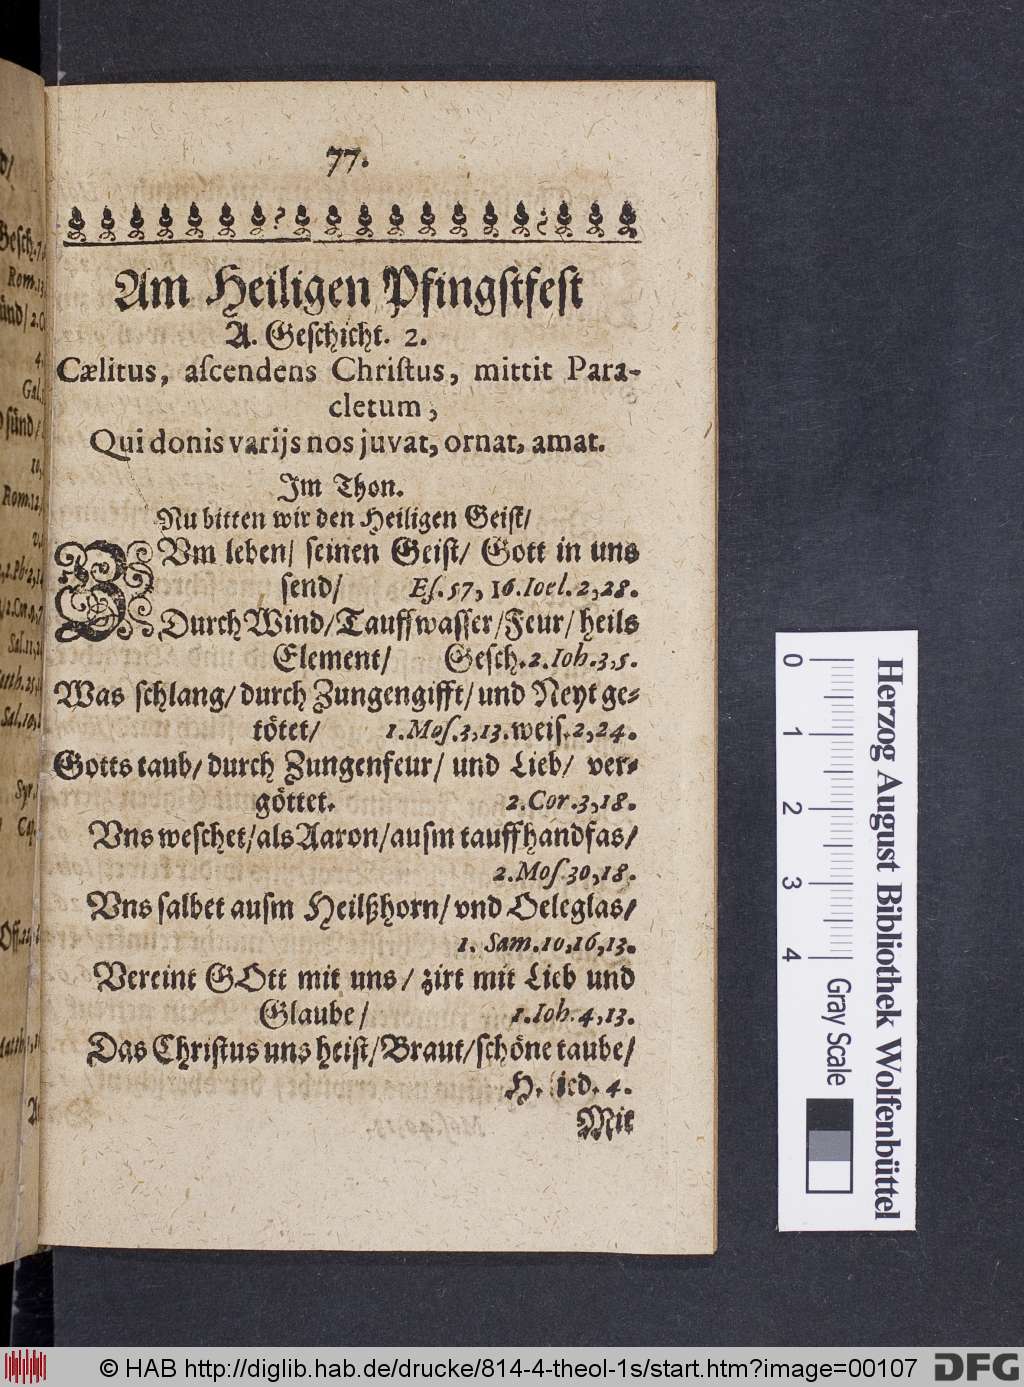 77.
Am Heiligen Pfingstfest
A. Geschicht. 2.
Cælitus, aſcendens Chriſtus, mittit Para-
cletum,
Qui donis varijs nos juvat, ornat, amat.
Im Thon.
Nu bitten wir den Heiligen Geiſt/
Vm leben/ ſeinen Geiſt/ Gott in uns
ſend/ Eſ. 57, 16. Ioel. 2, 28.
Durch Wind/ Tauffwaſſer/ Feur/ heils
Element/ Geſch. 2. Ioh. 3, 5.
Was ſchlang/ durch Zungengifft/ und Neyt ge-
tötet/ 1. Moſ. 3, 13. weiſ. 2, 24.
Gotts taub/ durch Zungenfeur/ und Lieb/ ver-
göttet. 2. Cor. 3, 18.
Vns weſchet/ als Aaron/ auſm tauffhandfas/
2. Moſ. 30, 18.
Vns ſalbet auſm Heilßhorn/ vnd Oeleglas/
1. Sam. 10, 16, 13.
Vereint GOtt mit uns/ zirt mit Lieb und
Glaube/ 1. Ioh. 4, 13.
Das Chriſtus uns heiſt/ Braut/ ſchöne taube/
H. lied. 4.
Mit
Geſch. 7,
Rom. 13,
Gal.
Rom. 12,
2. Cor. 9, 7
Sal. 11, 2
Sal. 19, 1
Syr.
0 1 2 3 4
Gray Scale
Herzog August Bibliothek Wolfenbüttel
© HAB http://diglib.hab.de/drucke/814-4-theol-1s/start.htm?image=00107
DFG